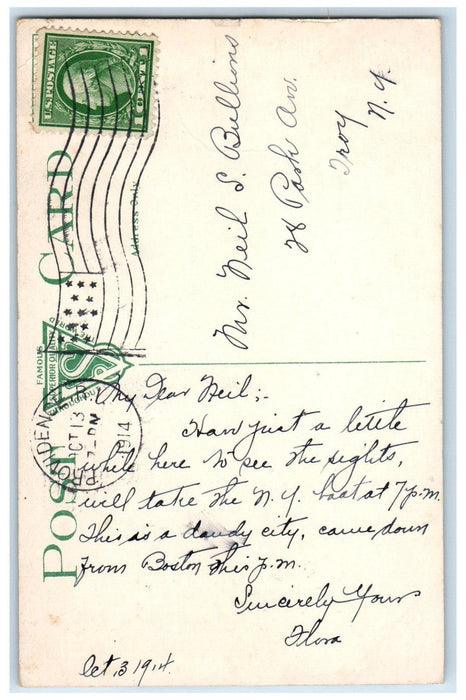 U.S. POSTAGE
1 CENT 1
POST CARD
Address Only
FAMOUS
SUPERIOR QUALITY
THROUGHOUT
THE WORLD
PROVIDENCE, R.I.
OCT 13
7-PM
1914
Mr. Neil S. Bullions
28 Park Av.
Troy
N.Y.
My Dear Neil;-
Have just a little
while here to see the sights,
will take the N.Y. boat at 7 p.m.
This is a dandy city, came down
from Boston this p.m.
Sincerely Yours
Flora
Oct, 3 1914.